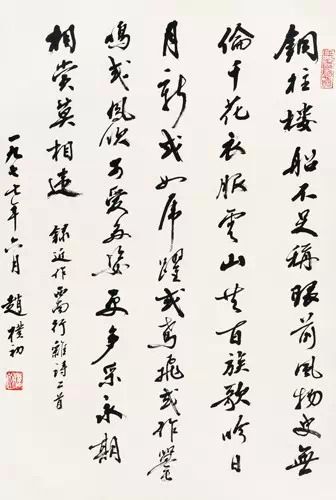 銅柱楼船不足稱眼前風物史無
倫千花衣服雲山共百族歌吟日
月新或如虎躍或鳶飛或作
鳴或吹可愛多姿更多采永期
相賞莫相違 錄近作西南行雜詩二首
一九七七年六月 趙樸初